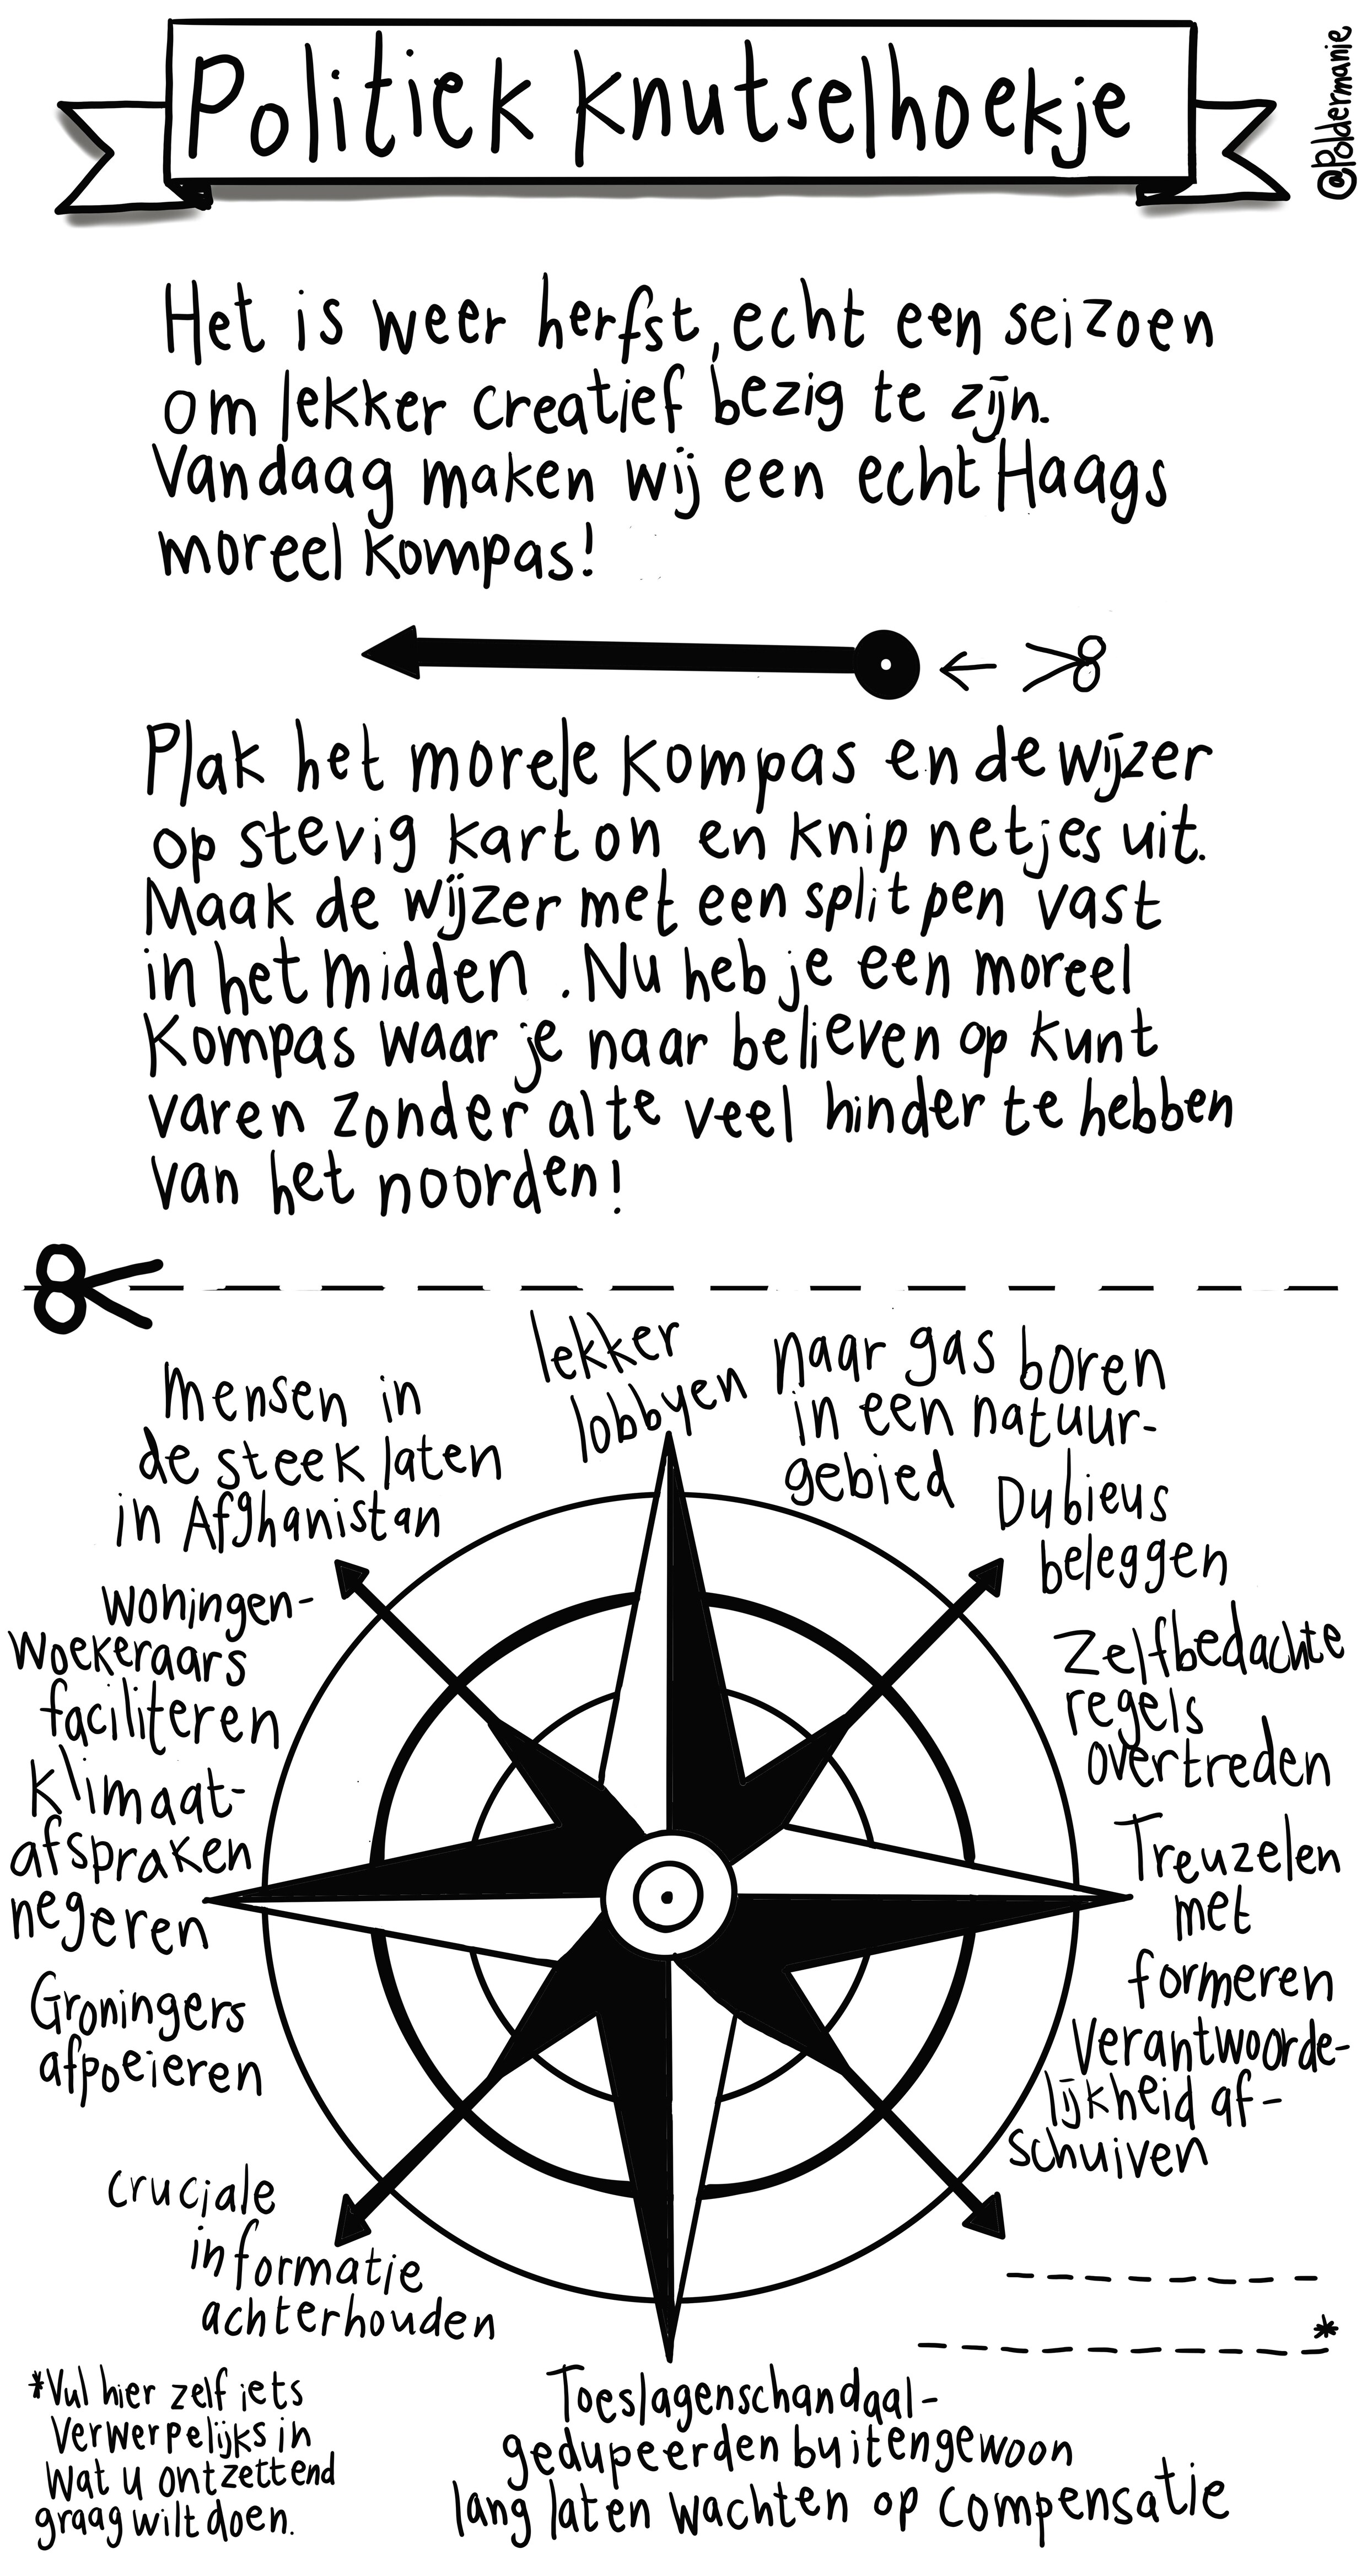 Politiek Knutselhoekje
@Poldermanie
Het is weer herfst, echt een seizoen
om lekker creatief bezig te zijn.
Vandaag maken wij een echt Haags
moreel kompas!
Plak het morele kompas en de wijzer
op stevig karton en knip netjes uit.
Maak de wijzer met een splitpen vast
in het midden. Nu heb je een moreel
kompas waar je naar believen op kunt
varen zonder al te veel hinder te hebben
van het noorden!
lekker
lobbyen
naar gas boren
in een natuur-
gebied
Dubieus
beleggen
Zelfbedachte
regels
overtreden
Treuzelen
met
formeren
Verantwoorde-
lijkheid af-
schuiven
*
Toeslagenschandaal-
gedupeerden buitengewoon
lang laten wachten op compensatie
cruciale
informatie
achterhouden
Groningers
afpoeieren
Klimaat-
afspraken
negeren
woningen-
woekeraars
faciliteren
mensen in
de steek laten
in Afghanistan
*Vul hier zelf iets
verwerpelijks in
wat u ontzettend
graag wilt doen.